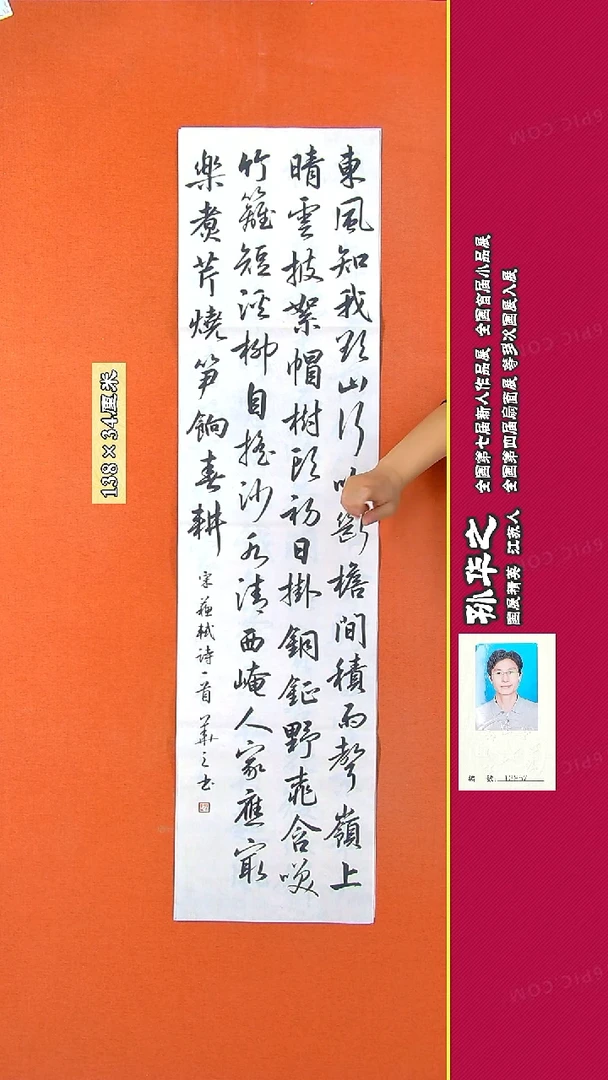 東風知我欲山行吹斷檐間積雨聲嶺上
晴雲披絮帽樹頭初日掛銅鉦野桃含笑
竹籬短溪柳自搖沙水清西崦人家應最
樂煮芹燒笋餉春耕
宋蘇軾詩一首 華之书
138×34厘米
全国第七届新人作品展 全国首届小品展
全国第四届扇面展 等多次国展入展
孙华之
国展精英 江苏人
编 号